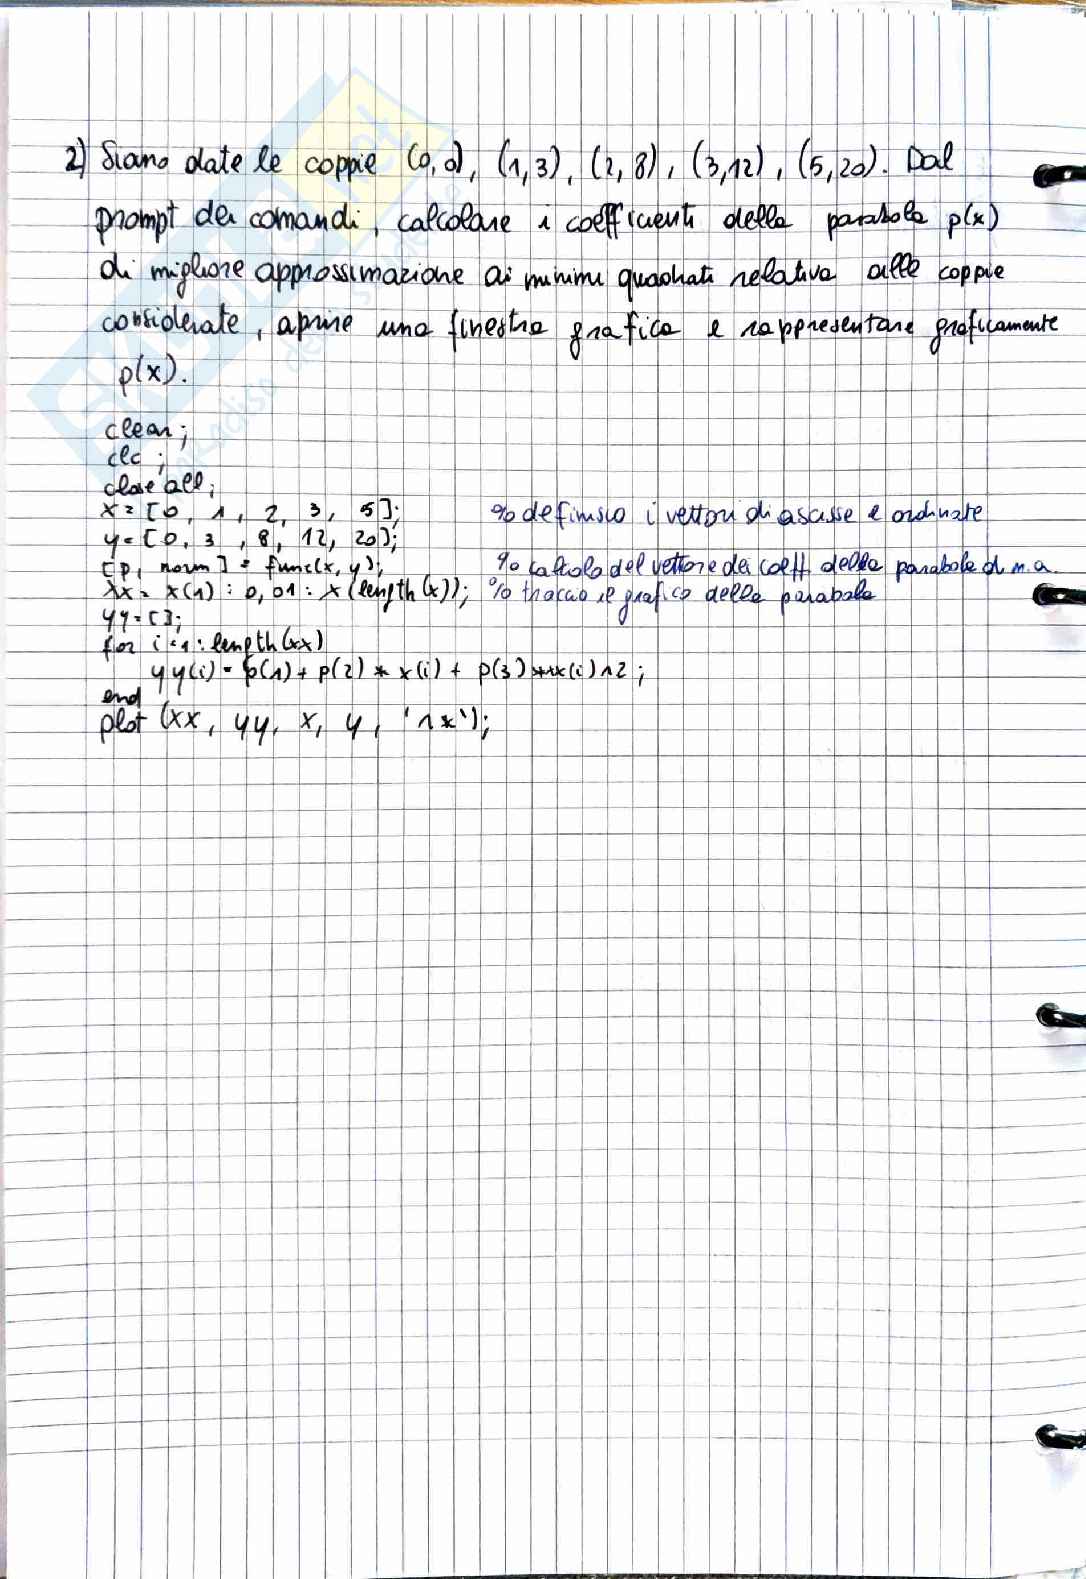 2) Siano date le coppie (0,0), (1,3), (2,8), (3,12), (5,20). Dal
prompt dei comandi, calcolare i coefficienti della parabola p(x)
di migliore approssimazione ai minimi quadrati relativa alle coppie
considerate, aprire una finestra grafica e rappresentare graficamente
p(x).
clear;
clc;
close all;
x = [0, 1, 2, 3, 5]; % definisco i vettori di ascisse e ordinate
y = [0, 3, 8, 12, 20];
[p, norm] = func(x, y); % calcolo del vettore dei coeff della parabola d m.a.
xx = x(1) : 0,01 : x(length(x)); % traccio il grafico della parabola
yy = [];
for i = 1 : length(xx)
yy(i) = p(1) + p(2) * x(i) + p(3) * xx(i)^2;
end
plot (xx, yy, x, y, 'r*');